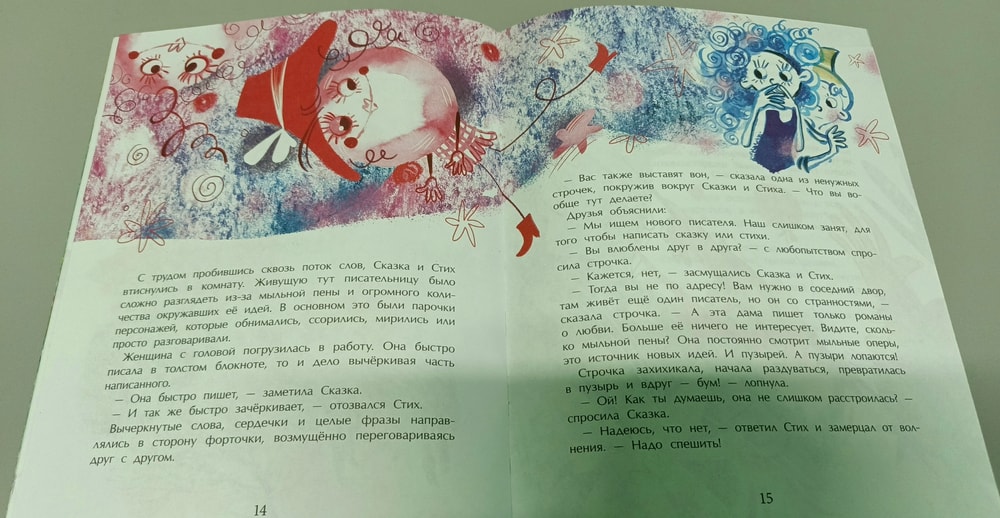 С трудом пробившись сквозь поток слов, Сказка и Стих
втиснулись в комнату. Живущую тут писательницу было
сложно разглядеть из-за мыльной пены и огромного коли-
чества окружавших её идей. В основном это были парочки
персонажей, которые обнимались, ссорились, мирились или
просто разговаривали.
Женщина с головой погрузилась в работу. Она быстро
писала в толстом блокноте, то и дело вычёркивая часть
написанного.
— Она быстро пишет, — заметила Сказка.
— И так же быстро зачёркивает, — отозвался Стих.
Вычеркнутые слова, сердечки и целые фразы направ-
лялись в сторону форточки, возмущённо переговариваясь
друг с другом.
14
— Вас также выставят вон, — сказала одна из ненужных
строчек, покружив вокруг Сказки и Стиха. — Что вы во-
обще тут делаете?
Друзья объяснили:
— Мы ищем нового писателя. Наш слишком занят, для
того чтобы написать сказку или стихи.
— Вы влюблены друг в друга? — с любопытством спро-
сила строчка.
— Кажется, нет, — засмущались Сказка и Стих.
— Тогда вы не по адресу! Вам нужно в соседний двор,
там живёт ещё один писатель, но он со странностями, —
сказала строчка. — А эта дама пишет только романы
о любви. Больше её ничего не интересует. Видите, сколь-
ко мыльной пены? Она постоянно смотрит мыльные оперы,
это источник новых идей. И пузырей. А пузыри лопаются!
Строчка захихикала, начала раздуваться, превратилась
в пузырь и вдруг — бум! — лопнула.
— Ой! Как ты думаешь, она не слишком расстроилась? —
спросила Сказка.
— Надеюсь, что нет, — ответил Стих и замерцал от вол-
нения. — Надо спешить!
15